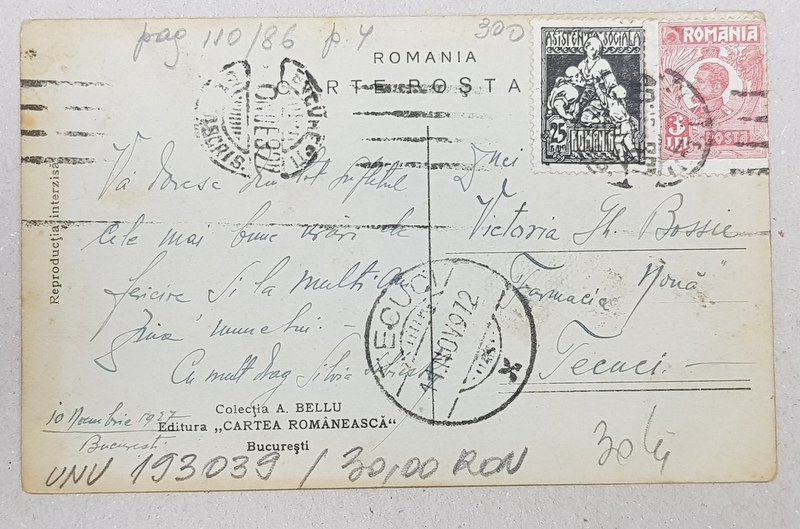 pag 110/86 p. 4
300
ROMANIA
CARTE POŞTA
ASISTENTA SOCIALA
25
BANI
ROMANIA
ROMANIA
3
LEI
POSTA
BUCUREŞTI
Reproducţia interzisă
Vă doresc din tot sufletul
cele mai bune urări de
fericire şi la mulţi ani
ziua numelui.
Cu mult drag Silvia
10 Noembrie 1927
Bucuresti
Dnei
Victoria Gh. Bossie
Farmacia Nouă"
Tecuci
TECUCI
11 NOV 9 12
Colecţia A. BELLU
Editura „CARTEA ROMÂNEASCĂ"
Bucureşti
30 lei
UNU 193039 / 30,00 RON